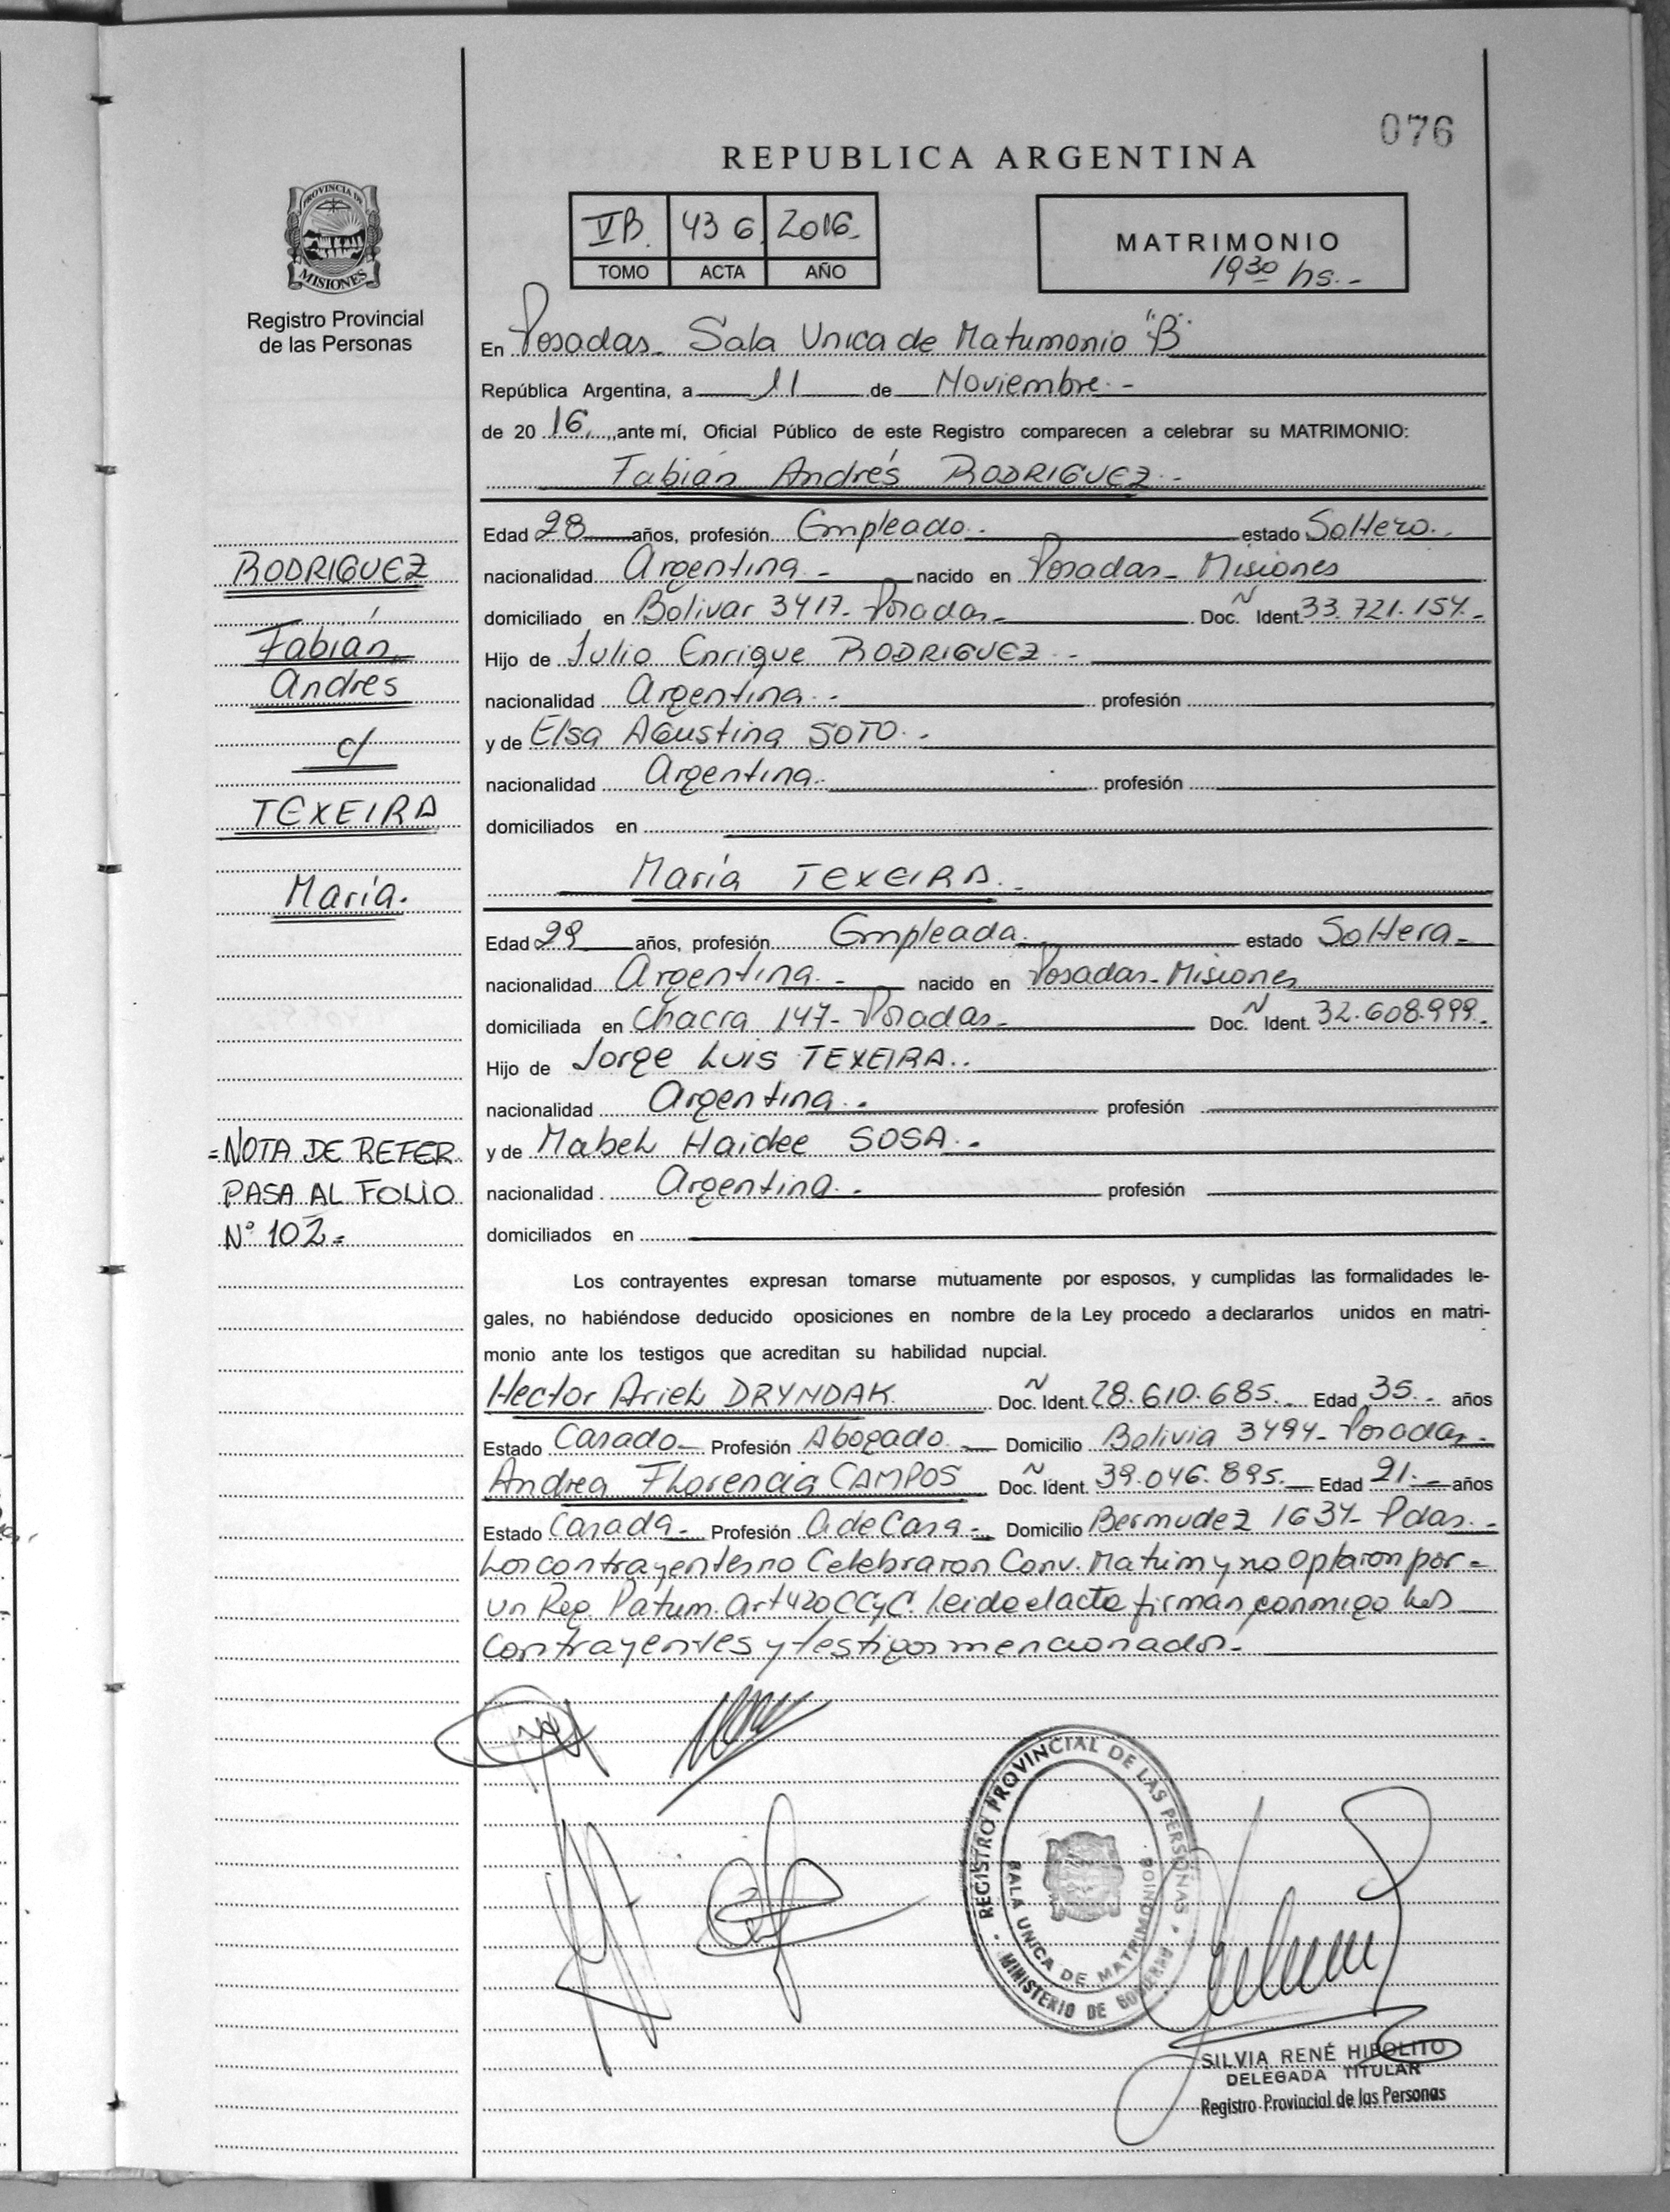 076
REPUBLICA ARGENTINA
PROVINCIA DE
MISIONES
Registro Provincial
de las Personas
VB. 436. 2016.
TOMO ACTA AÑO
MATRIMONIO
19 30 hs.-
En Posadas- Sala Unica de Matrimonio "B"
República Argentina, a 11 de Noviembre.-
de 20 16, ante mí, Oficial Público de este Registro comparecen a celebrar su MATRIMONIO:
Fabián Andrés RODRIGUEZ.-
Edad 28 años, profesión Empleado.- estado Soltero.
nacionalidad Argentina.- nacido en Posadas- Misiones
domiciliado en Bolivar 3417- Posadas.- Doc. N Ident. 33.721.154.-
Hijo de Julio Enrique RODRIGUEZ.-
nacionalidad Argentina.- profesión
y de Elsa Agustina SOTO.-
nacionalidad Argentina.- profesión
domiciliados en
María TEXEIRA.-
Edad 29 años, profesión Empleada.- estado Soltera-
nacionalidad Argentina.- nacido en Posadas- Misiones
domiciliada en Chacra 147- Posadas- Doc. N Ident. 32.608.999.-
Hijo de Jorge Luis TEXEIRA.-
nacionalidad Argentina.- profesión
y de Mabel Haidee SOSA.-
nacionalidad Argentina.- profesión
domiciliados en
RODRIGUEZ
Fabián
Andrés
c/
TEXEIRA
María.
=NOTA DE REFER
PASA AL FOLIO
N° 102=
Los contrayentes expresan tomarse mutuamente por esposos, y cumplidas las formalidades le-
gales, no habiéndose deducido oposiciones en nombre de la Ley procedo a declararlos unidos en matri-
monio ante los testigos que acreditan su habilidad nupcial.
Hector Ariel DRYNDAK Doc. N Ident. 28.610.685.- Edad 35.- años
Estado Casado- Profesión Abogado.- Domicilio Bolivia 3494- Posadas-
Andrea Florencia CAMPOS Doc. N Ident. 39.046.895.- Edad 21.- años
Estado Casada- Profesión A de Casa- Domicilio Bermudez 1637- Pdas.-
Los contrayentes no Celebraron Conv. Matrim y no Optaron por-
un Reg. Patrim. Art 420 CCyC. Leida el acta firman conmigo los
Contrayentes y testigos mencionados.-
REGISTRO PROVINCIAL DE LAS PERSONAS
SALA UNICA DE MATRIMONIOS
MINISTERIO DE GOBIERNO
SILVIA RENÉ HIPOLITO
DELEGADA TITULAR
Registro Provincial de las Personas